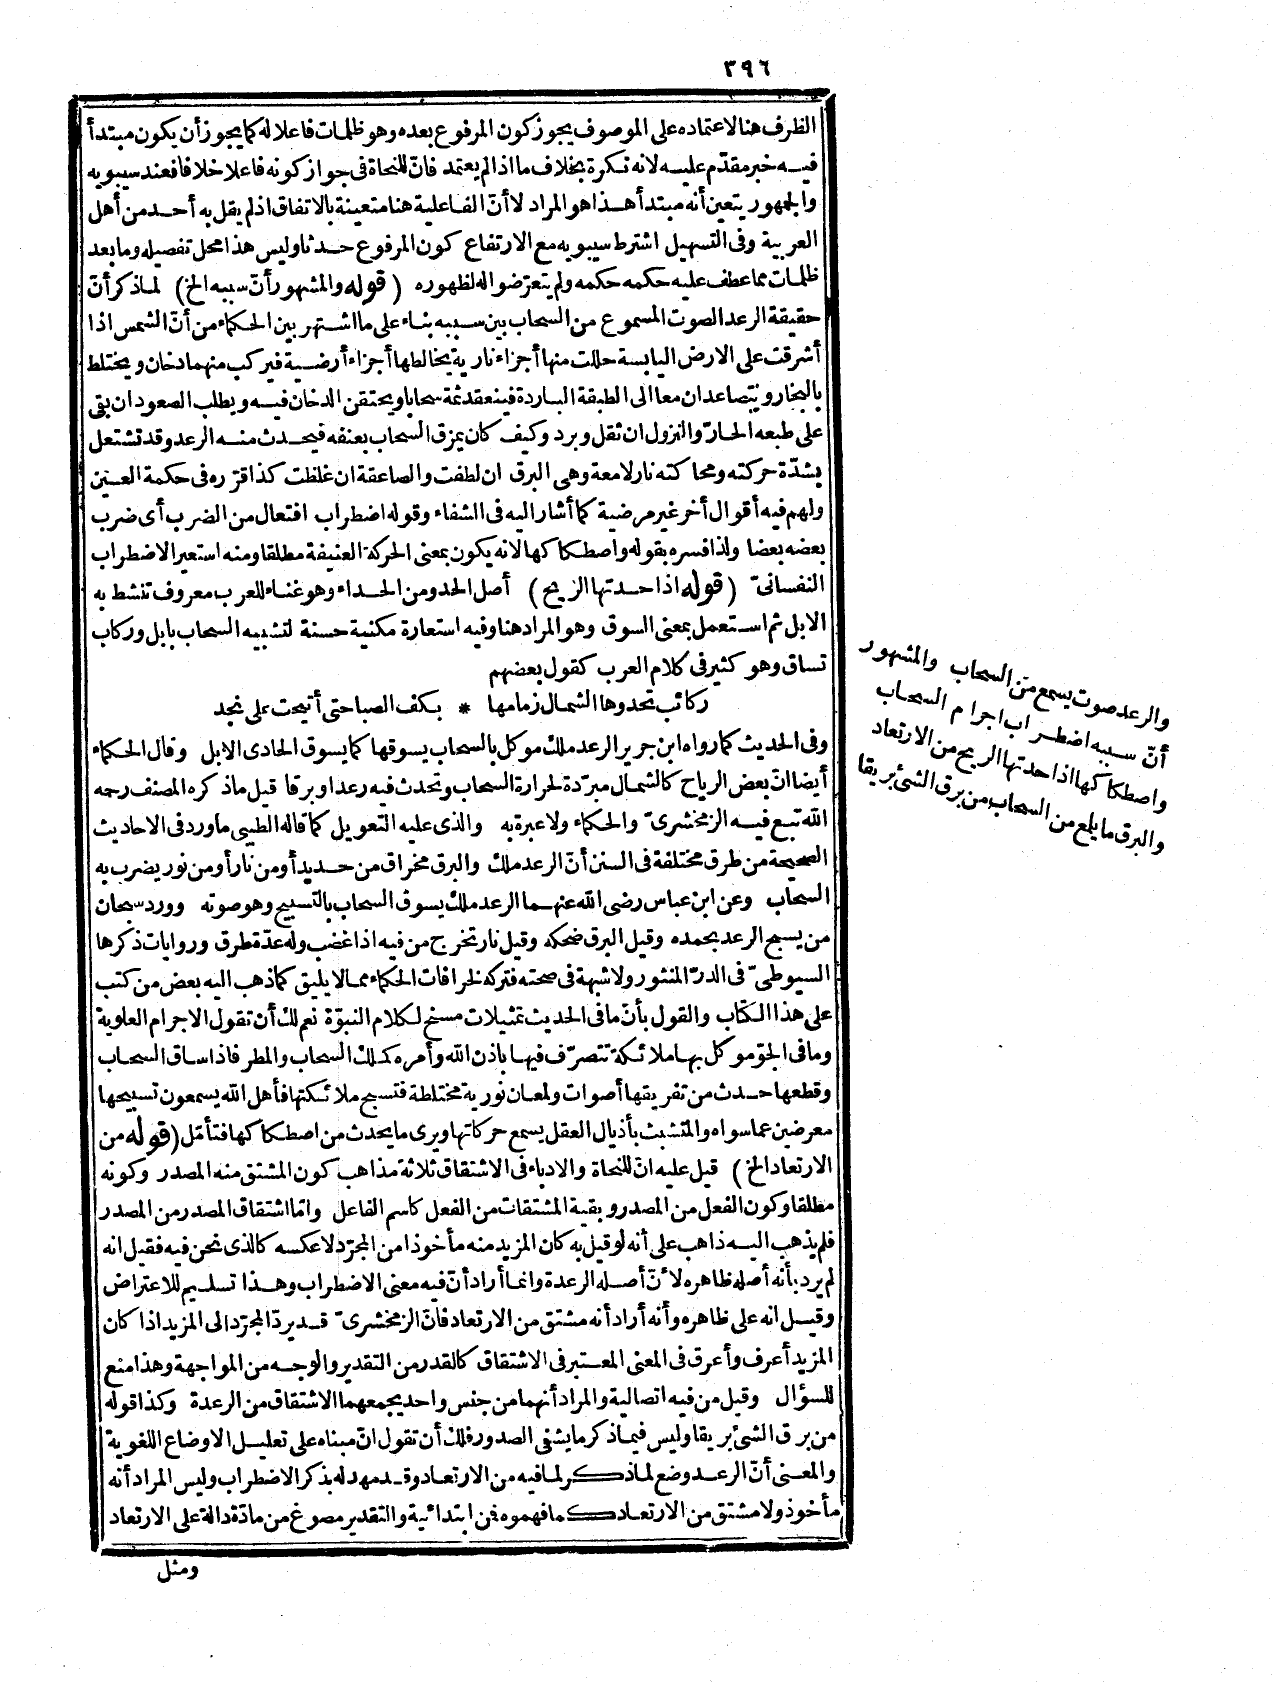 ٣٩٦
الظرف هنا لاعتماده على الموصوف يجوز كون المرفوع بعده وهو ظلمات فاعلا له كما يجوز أن يكون مبتدأ
فيه خبر مقدّم عليه لانه نكرة بخلاف ما اذا لم يعتمد فانّ للنحاة فى جواز كونه فاعلا خلافا فعند سيبويه
والجمهور يتعين أنه مبتدأ هذا هو المراد لا أنّ الفاعلية هنا متعينة بالاتفاق اذ لم يقل به أحد من أهل
العربية وفى التسهيل اشترط سيبويه مع الارتفاع كون المرفوع حدثا وليس هذا محل تفصيله وما بعد
ظلمات مما عطف عليه حكمه حكمه ولم يتعرّضوا له لظهوره (قوله والمشهور أنّ سببه الخ) لما ذكر أنّ
حقيقة الرعد الصوت المسموع من السحاب بين سببه بناء على ما اشتهر بين الحكماء من أنّ الشمس اذا
أشرقت على الارض اليابسة حللت منها أجزاء نارية يخالطها أجزاء أرضية فيركب منهما دخان ويختلط
بالبخار ويتصاعدان معا الى الطبقة الباردة فينعقد ثمة سحابا ويحتقن الدخان فيه ويطلب الصعود ان بقى
على طبعه الحارّ والنزول ان ثقل وبرد وكيف كان يمزق السحاب بعنفه فيحدث منه الرعد وقد تشتعل
بشدّة حركته ومحاكته نار لامعة وهى البرق ان لطفت والصاعقة ان غلظت كذا قرّره فى حكمة العين
ولهم فيه أقوال أخر غير مرضية كما أشار اليه فى الشفاء وقوله اضطراب افتعال من الضرب أى ضرب
بعضه بعضا ولذا فسره بقوله واصطكاكها لانه يكون بمعنى الحركة العنيفة مطلقا ومنه استعير الاضطراب
النفسانىّ (قوله اذا حدتها الريح) أصل الحدو من الحداء وهو غناء للعرب معروف تنشط به
الابل ثم استعمل بمعنى السوق وهو المراد هنا وفيه استعارة مكنية حسنة لتشبيه السحاب بابل وركاب
تساق وهو كثير فى كلام العرب كقول بعضهم
ركائب تحدوها الشمال زمامها * بكف الصبا حتى أنيخت على نجد
وفى الحديث كما رواه ابن جرير الرعد ملك موكل بالسحاب يسوقها كما يسوق الحادى الابل وقال الحكماء
أيضا انّ بعض الرياح كالشمال مبرّدة لحرارة السحاب وتحدث فيه رعدا وبرقا قيل ما ذكره المصنف رحمه
الله تبع فيه الزمخشرىّ والحكماء ولا عبرة به والذى عليه التعويل كما قاله الطيبى ما ورد فى الاحاديث
الصحيحة من طرق مختلفة فى السنن أنّ الرعد ملك والبرق مخراق من حديد أو من نار أو من نور يضرب به
السحاب وعن ابن عباس رضى الله عنهما الرعد ملك يسوق السحاب بالتسبيح وهو صوته وورد سبحان
من يسبح الرعد بحمده وقيل البرق ضحكه وقيل نار تخرج من فيه اذا غضب وله عدّة طرق وروايات ذكرها
السيوطىّ فى الدرّ المنثور ولا شبهة فى صحته فتركه لخرافات الحكماء مما لا يليق كما ذهب اليه بعض من كتب
على هذا الكتاب والقول بأنّ ما فى الحديث تمثيلات مسخ لكلام النبوّة نعم لك أن تقول الاجرام العلوية
وما فى الجوّ موكل بها ملائكة تتصرّف فيها باذن الله وأمره كملك السحاب والمطر فاذا ساق السحاب
وقطعها حدث من تفريقها أصوات ولمعان نورية مختلطة فتسبح ملائكتها فأهل الله يسمعون تسبيحها
معرضين عما سواه والمتشبث بأذيال العقل يسمع حركاتها ويرى ما يحدث من اصطكاكها فتأمّل (قوله من
الارتعاد الخ) قيل عليه انّ للنحاة والادباء فى الاشتقاق ثلاثة مذاهب كون المشتق منه المصدر وكونه
مطلقا وكون الفعل من المصدر وبقية المشتقات من الفعل كاسم الفاعل وامّا اشتقاق المصدر من المصدر
فلم يذهب اليه ذاهب على أنه لو قيل به كان المزيد منه مأخوذا من المجرّد لا عكسه كالذى نحن فيه فقيل انه
لم يرد بأنه أصله ظاهره لأنّ أصله الرعدة وانما أراد أنّ فيه معنى الاضطراب وهذا تسليم للاعتراض
وقيل انه على ظاهره وأنه أراد أنه مشتق من الارتعاد فانّ الزمخشرىّ قد يردّ المجرّد الى المزيد اذا كان
المزيد أعرف وأعرق فى المعنى المعتبر فى الاشتقاق كالقدر من التقدير والوجه من المواجهة وهذا منع
للسؤال وقيل من فيه اتصالية والمراد أنهما من جنس واحد يجمعهما الاشتقاق من الرعدة وكذا قوله
من برق الشئ بريقا وليس فيما ذكر ما يشفى الصدور فلك أن تقول انّ مبناه على تعليل الاوضاع اللغوية
والمعنى أنّ الرعد وضع لما ذكر لما فيه من الارتعاد وقد مهد له بذكر الاضطراب وليس المراد أنه
مأخوذ ولا مشتق من الارتعاد كما فهموه فمن ابتدائية والتقدير مصوغ من مادّة دالة على الارتعاد
ومثل
والرعد صوت يسمع من السحاب والمشهور
أنّ سببه اضطراب اجرام السحاب
واصطكاكها اذا حدتها الريح من الارتعاد
والبرق ما يلمع من السحاب من برق الشئ بريقا